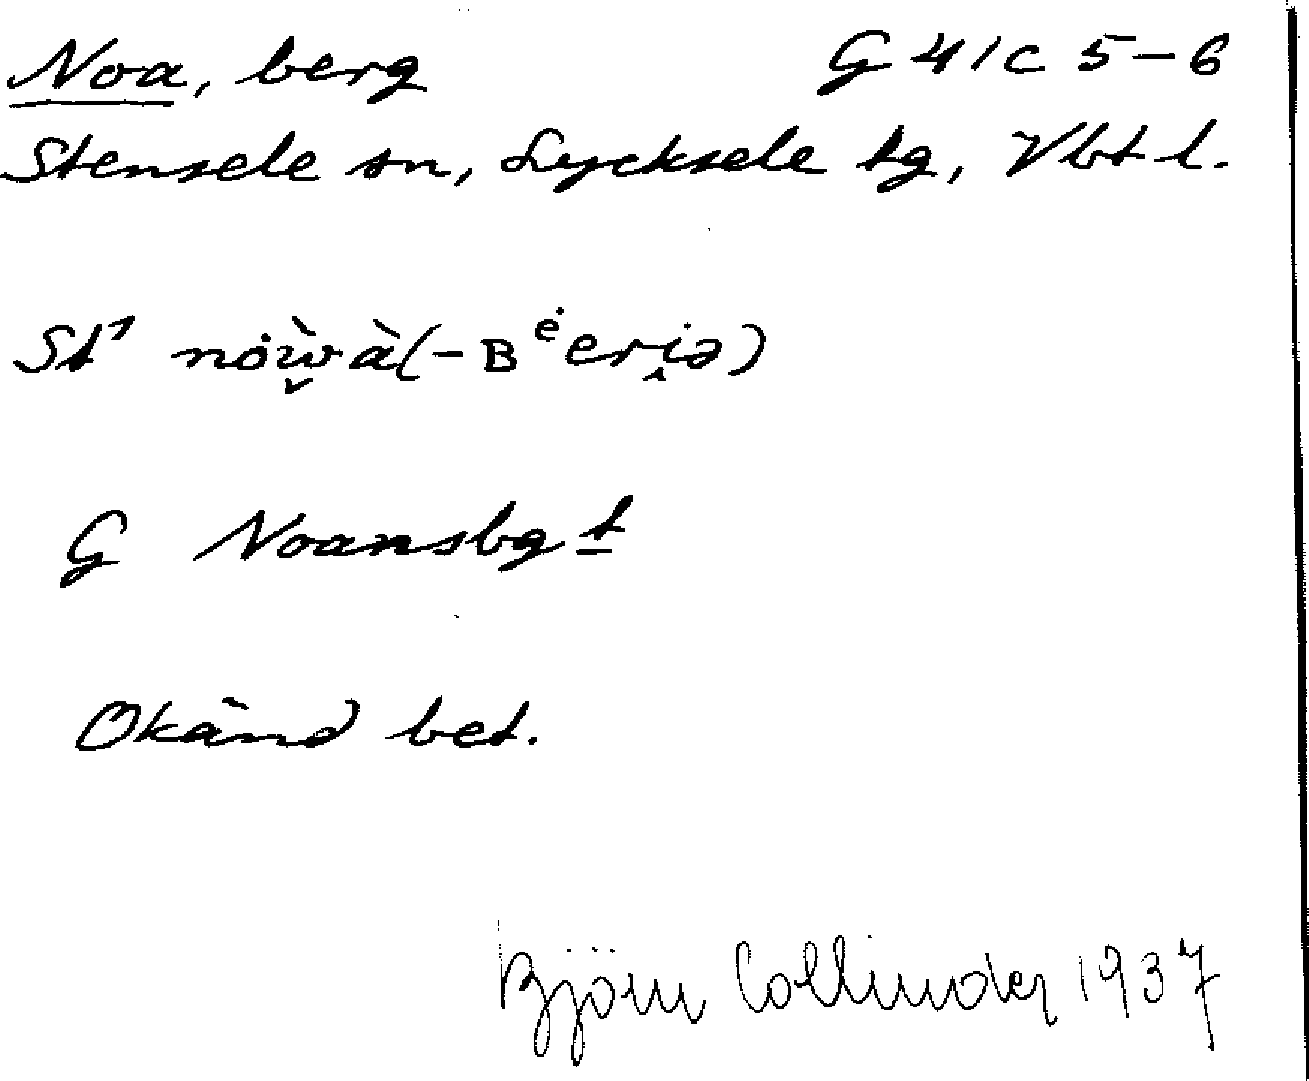 Noa, berg G 41c 5-6
Stensele sn, Lycksele tg, Vbt l.
St¹ nȯẁ̬à(-Bᵉ̇eri̭ə)
G Noansbgt
Okänd bet.
Björn Collinder 1937